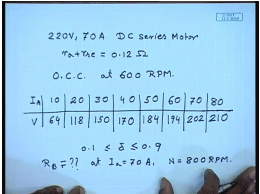 220V, 70A DC Series Motor
ra+rse = 0.12 Ω
O.C.C. at 600 RPM.
IA | 10 | 20 | 30 | 40 | 50 | 60 | 70 | 80
V | 64 | 118 | 150 | 170 | 184 | 194 | 202 | 210
0.1 ≤ δ ≤ 0.9
RBr = ?? at Ia = 70A, N = 800 RPM.